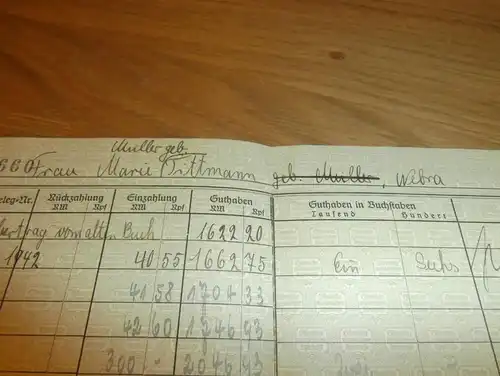 Müller geb.
Frau Marie Dittmann geb. Müller, Webra
eleg-Nr. Rückzahlung Einzahlung Guthaben Guthaben in Buchstaben
RM Rpf RM Rpf RM Rpf Tausend Hundert
bertrag vom alten Buch 1622 20
1942 40 55 1662 75 Ein Sechs
41 58 1704 33
42 60 1746 93
300 - 2046 93